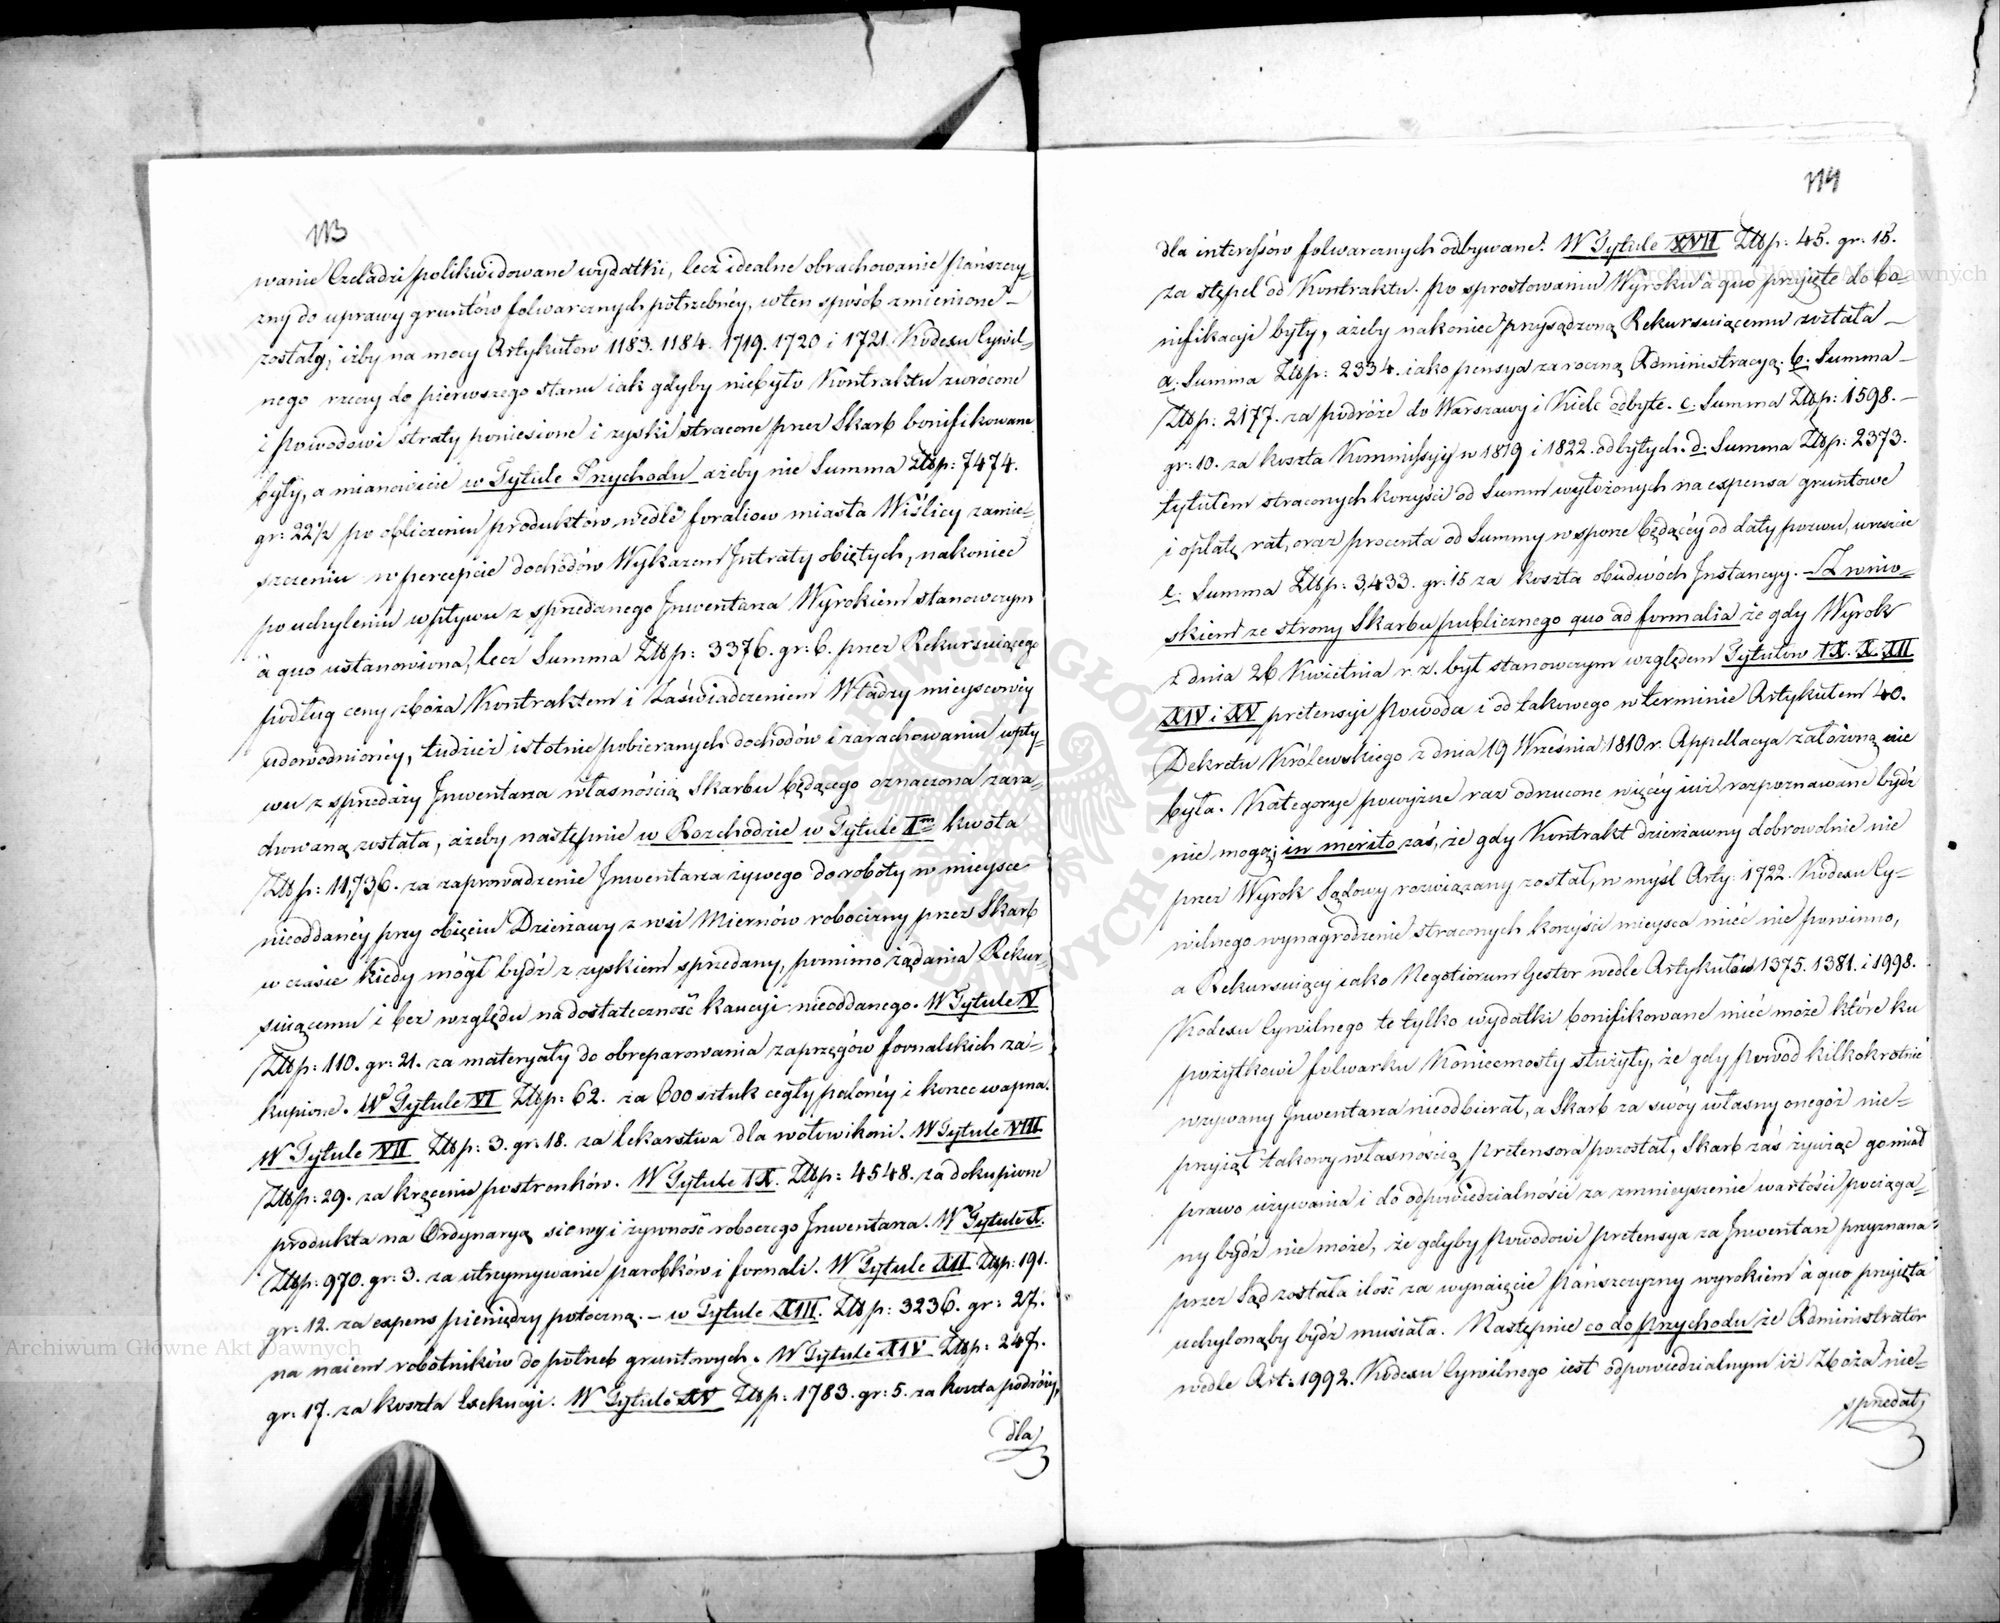 113
wanie Czeladzi polikwidowane wydatki, lecz idealne obrachowanie Pańszczy=
zny do uprawy gruntów folwarcznych potrzebnéy, w ten sposób zmienione –
zostały, iżby na mocy Artykułow 1183. 1184. 1719. 1720 i 1721. Kodexu Cywil=
nego rzeczy do pierwszego stanu iak gdyby niebyło Kontraktu zwrócone
i Powodowi straty poniesione i zyski stracone przez Skarb bonifikowane
były, a mianowicie w Tytule Przychodu ażeby nie Summa Złp: 7474.
gr: 22½ po obliczeniu produktów wedle foraliow miasta Wiślicy zamie=
szczeniu w percepcie dochodów Wykazem Intraty obiętych, nakoniec
po uchyleniu wpływu z sprzedanego Inwentarza Wyrokiem stanowczym
à quo ustanowiona, lecz Summa Złp: 3376. gr: 6. przez Rekursuiącego
podług ceny zboża Kontraktem i Zaświadczeniem Władzy mieyscowéy
udowodnionéy, tudzież istotnie pobieranych dochodów i zarachowaniu wpły=
wu z sprzedaży Inwentarza własnością Skarbu będącego oznaczona zara=
chowaną została, ażeby następnie w Rozchodzie w Tytule Im kwota
Złp: 11,736. za zaprowadzenie Inwentarza żywego do roboty w mieysce
nieoddanéy przy obięciu Dzierżawy z wsi Miernów robocizny przez Skarb
w czasie kiedy mógł bydź z zyskiem sprzedany, pomimo żądania Rekur=
suiącemu i bez względu na dostateczność kaucyi nieoddanego. W Tytule V
Złp: 110. gr: 21. za materyały do obreparowania zaprzęgów fornalskich za=
kupione. W Tytule VI Złp: 62. za 600 sztuk cegły palonéy i korzec wapna.
W Tytule VII Złp: 3. gr: 18. za lekarstwa dla wołów i koni. W Tytule VIII
Złp: 29. za kręcenie postronków. W Tytule IX. Złp: 4548. za dokupione
produkta na Ordynaryą siewy i żywność roboczego Inwentarza. W Tytule X.
Złp: 970. gr: 3. za utrzymywanie parobków i fornali. W Tytule XII Złp: 191.
gr: 12. za expens pieniędzy potoczną. – w Tytule XIII. Złp: 3236. gr: 27.
na naiem robotników do potrzeb gruntowych. W Tytule XIV Złp: 247.
gr: 17. za koszta Exekucyi. W Tytule XV Złp: 1783. gr: 5. za koszta podróży,
dla
114
dla interessów folwarcznych odbywane. W Tytule XVII Złp: 45. gr: 15.
za stępel od Kontraktu. po sprostowaniu Wyroku à quo przyięte do bo=
nifikacyi były, ażeby nakoniec przysądzoną Rekursuiącemu została –
a. Summa Złp: 2334. iako pensya za roczną Administracyą. b. Summa –
Złp: 2177. za podróże do Warszawy i Kielc odbyte. c. Summa Złp: 1598. –
gr: 10. za koszta Kommissyi w 1819 i 1822. odbytych. d. Summa Złp: 2373.
tytułem straconych korzyści od Summ wyłożonych na expensa gruntowe
i opłatę rat, oraz procenta od Summy w sporze będącéy od daty pozwu, wreszcie
e. Summa Złp: 3,433. gr: 15 za koszta obudwóch Instancyy. – Z wnio=
skiem ze strony Skarbu publicznego quo ad formalia że gdy Wyrok
z dnia 26 Kwietnia r. z. był stanowczym względem Tytułow IX. X. XII
XIV i XV pretensyi Powoda i od takowego w terminie Artykułem 40.
Dekretu Królewskiego z dnia 19 Września 1810 r. Appellacya założoną nie
była. Kategorye powyższe raz odrzucone więcéy iuż rozpoznawane bydź
nie mogą; in merito zaś, że gdy Kontrakt dzierżawny dobrowolnie nie
przez Wyrok Sądowy rozwiązany został, w myśl Arty: 1722. Kodexu Cy=
wilnego wynagrodzenie straconych korzyści mieysca mieć nie powinno,
a Rekursuiący iako Negotiorum Gestor wedle Artykułów 1375. 1381. i 1998.
Kodexu Cywilnego te tylko wydatki bonifikowane mieć może które ku
pożytkowi folwarku Koniecmosty służyły, że gdy Powód kilkokrotnie
wzywany Inwentarza nieodbierał, a Skarb za swoy własny onegoż nie=
przyiął takowy własnością Pretensora pozostał, Skarb zaś żywiąc go miał
prawo używania i do odpowiedzialności za zmnieyszenie wartości pociąga=
ny bydź nie może, że gdyby Powodowi pretensya za Inwentarz przyznana
przez Sąd została ilość za wynaięcie Pańszczyzny wyrokiem à quo przyięta
uchylonąby bydź musiała. Następnie co do Przychodu że Administrator
wedle Art: 1992. Kodexu Cywilnego iest odpowiedzialnym iż Zboża nie=
sprzedał,
Archiwum Główne Akt Dawnych
Archiwum Główne Akt Dawnych